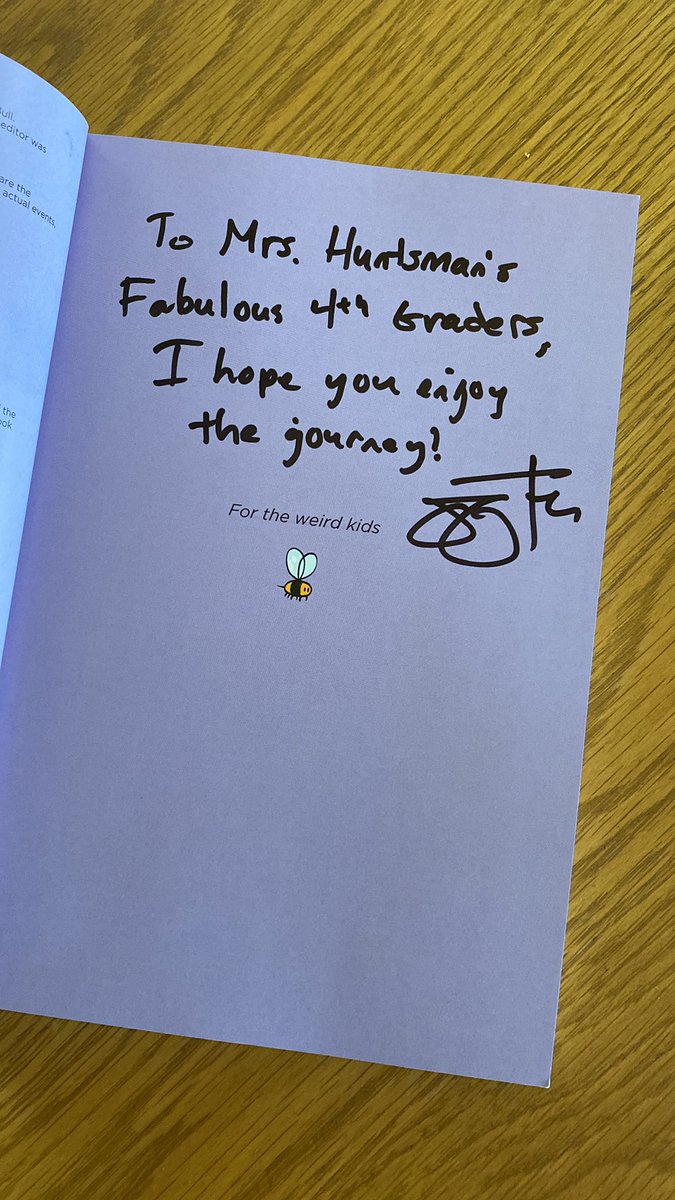 ull.
editor was
are the
actual events,
the
ook
To Mrs. Huntsman's
Fabulous 4th Graders,
I hope you enjoy
the journey!
For the weird kids